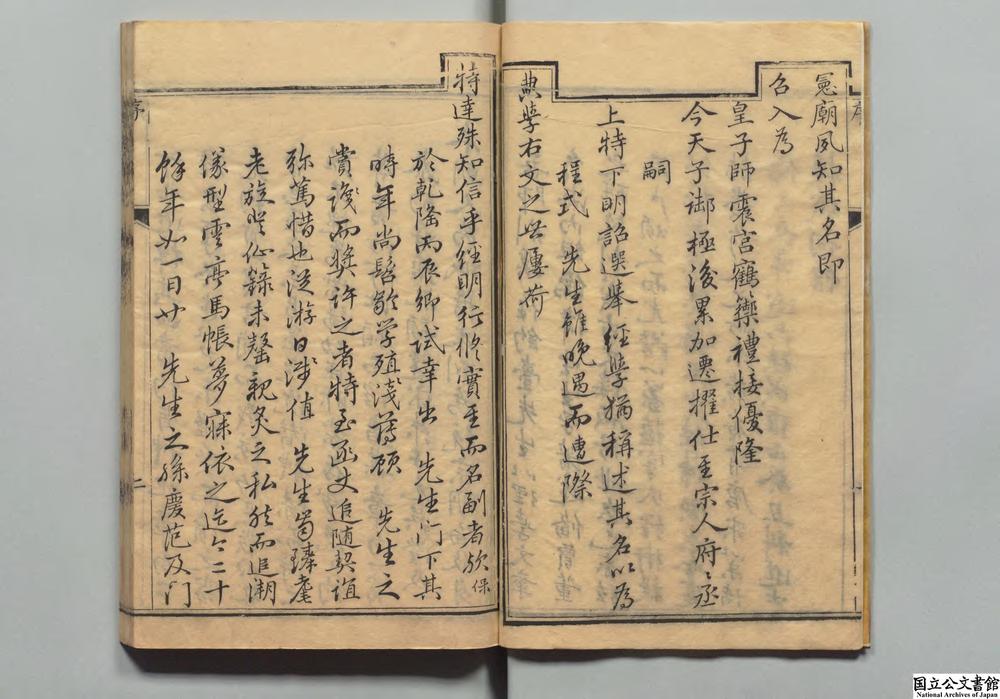 憲廟夙知其名即
召入為
皇子師震宮鶴籞禮接優隆
今天子御極後累加遷擢仕至宗人府〻丞
嗣
上特下明詔選舉經學猶稱述其名以為
程式　先生雖晚遇而遭際
典學右文之世屢荷
特達殊知信乎經明行修實至而名副者歟保
於乾隆丙辰鄉試幸出　先生門下其
時年尚髫齡學殖淺薄顧　先生之
賞識而獎許之者特至函丈追隨契誼
弥篤惜也從游日淺值　先生篤臻耄
老旋登仙籙未罄親炙之私然而追溯
儀型雲亭馬帳夢寐依之迄今二十
餘年如一日廿　先生之孫慶范及門
序
二
序
国立公文書館
National Archives of Japan